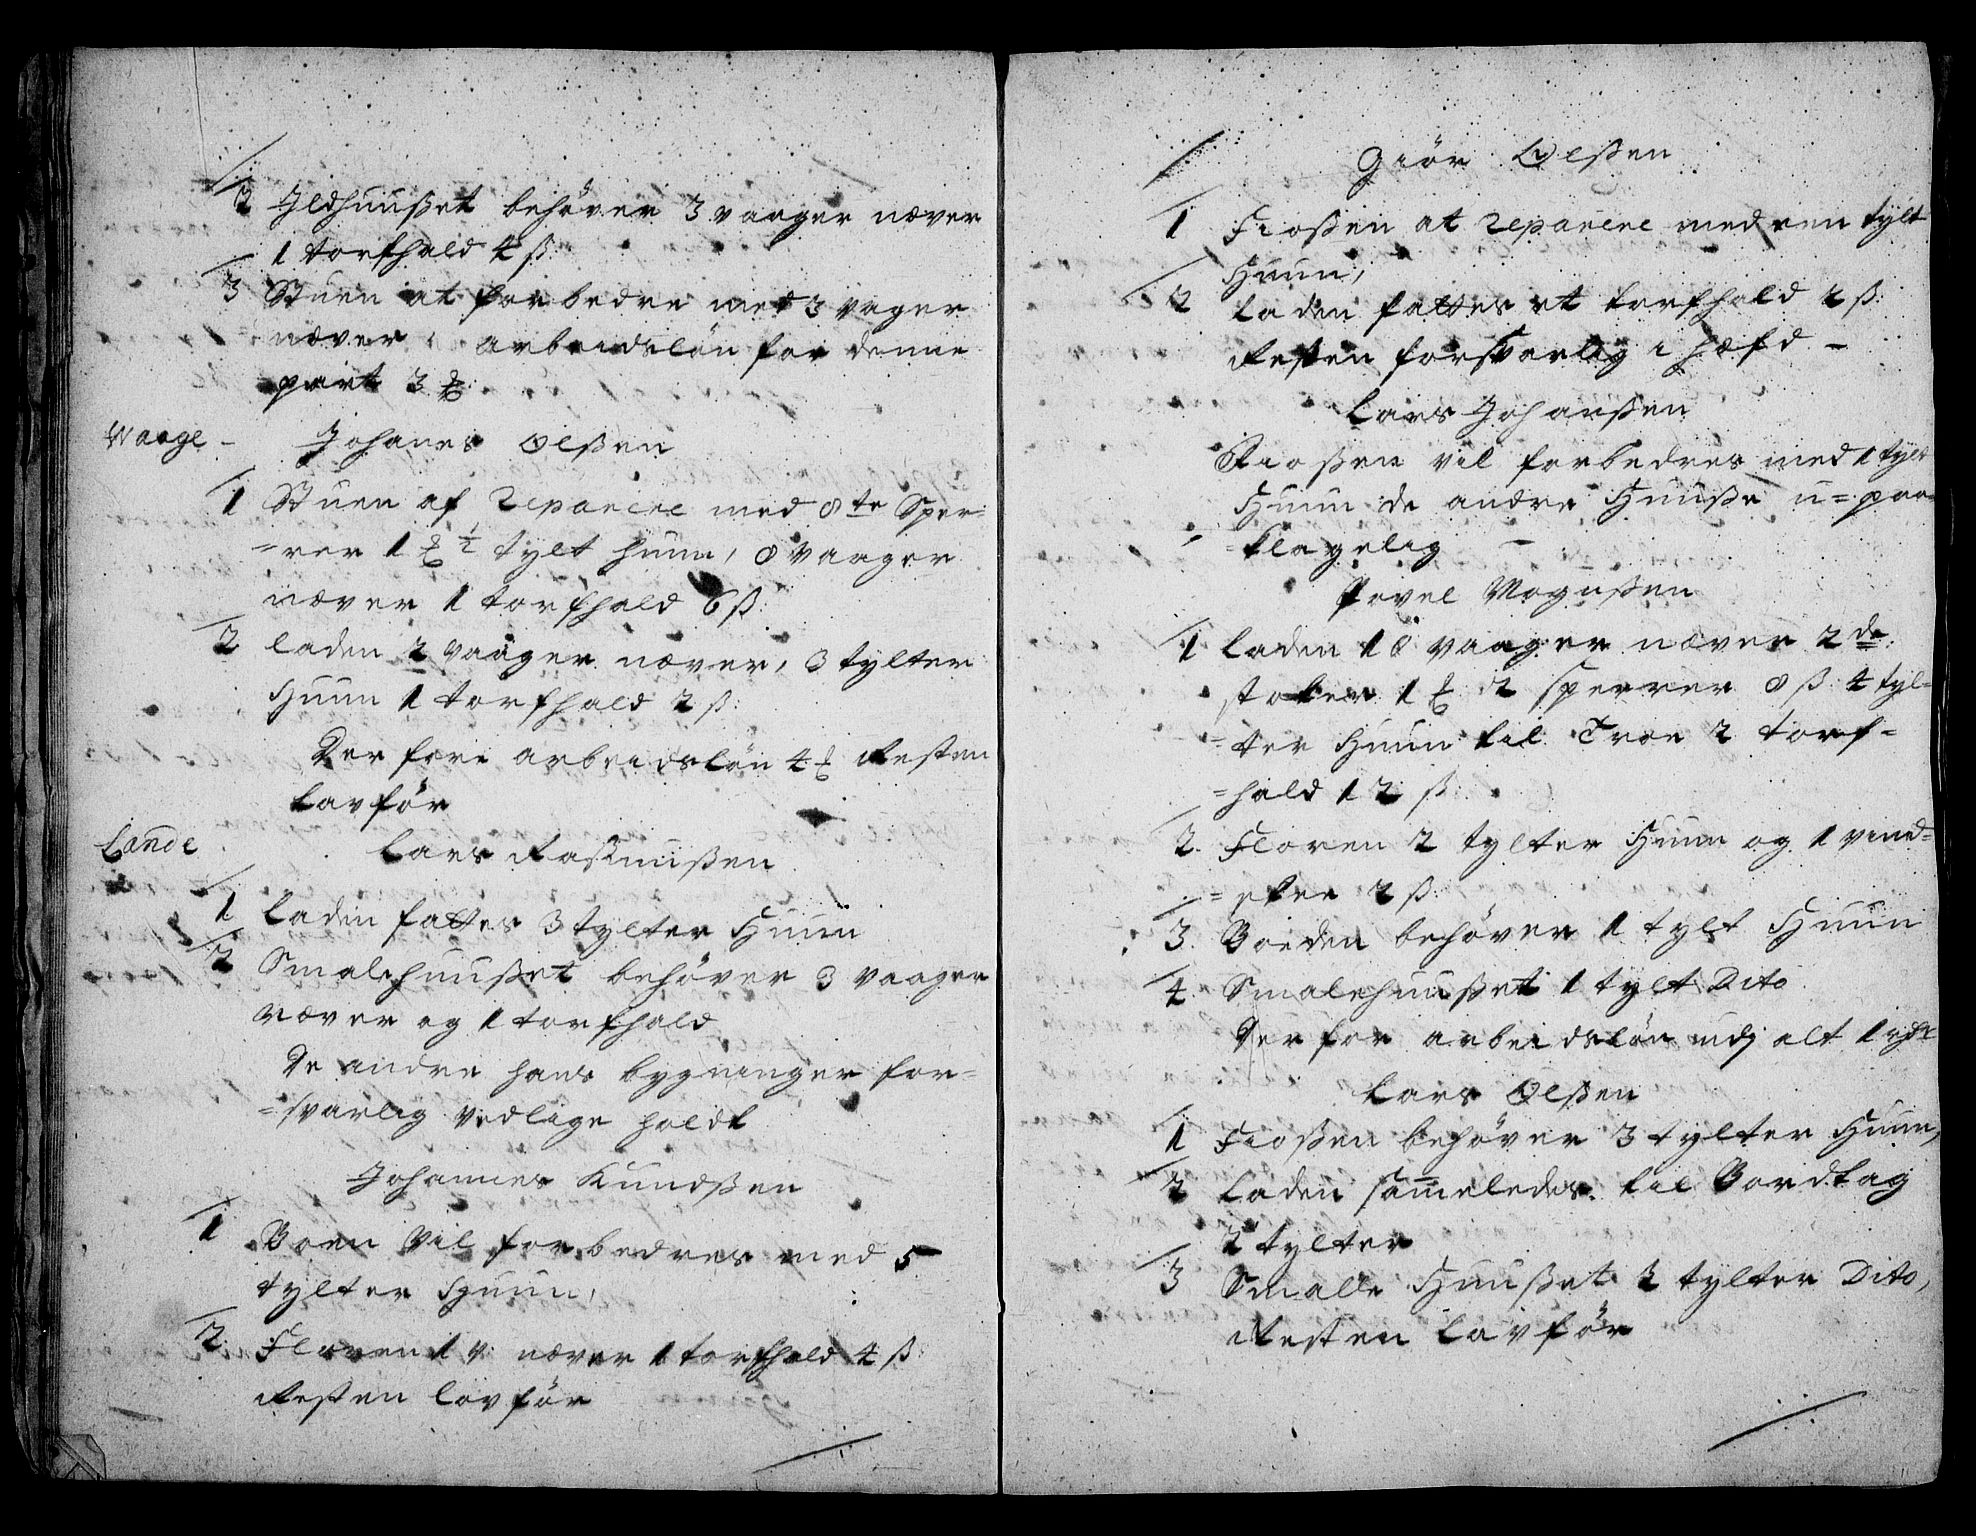 2 Jldhuuset behöver 3 vaager næver
1 torfhald 4 ß.
3 Stuen at forbedre med 3 vager
næver arbeidslön for denne
part 3 ꝶ
Waage - Johanes Olßen
1 Stuen at Reparere med 8te Sper=
=rer 1 ꝶ ½ tylt huun, 8 vaager
næver 1 torfhald 6 ß:
2 laden 2 vaager næver, 3 tylter
Huun 1 torfhald 2 ß:
Der fore arbeidslön 4 ꝶ Resten
lavför
Lande
Lars Rasmußen
1 laden fattes 3 tylter Huun
2 Smalehuußet behöver 3 vaager
Næver og 1 torfhald
De andre hans bygninger for=
=svarlig vedlige holdt
Johannes Knudßen
1 Boen vil forbedres med 5
tylter Huun,
2. Floren 1 v: næver 1 torfhald 4 ß:
Resten lovför
Giör Olßen
1 Floßen at Reparere med een tylt
Huun,
2 laden fattes et torfhald 2 ß:
Resten forsvarlig i hæfd -
Lars Johanßen
Floßen vil forbedres med 1 tylt
Huun de andre Huuße u=paa=
=klagelig -
Povel Mognßen
1 laden 18 vaager næver 2de
stoker 1 ꝶ 2 sperrer 8 ß: 4 tyl=
=ter Huun til Troe 2 torf=
=hald 12 ß:
2. Floren 2 tylter Huun og 1 vind=
=skee 2 ß:
3. Boeden behöver 1 tylt Huun
4. Smalehuußet 1 tylt Dito
Der for arbeidslön udj alt 1 rdr
Lars Olßen
1 Floßen behöver 3 tylter Huun,
2 laden sameledes til Bordtag
2 tylter
3 Smalle Huußet 3 tylter Dito,
Resten lavför